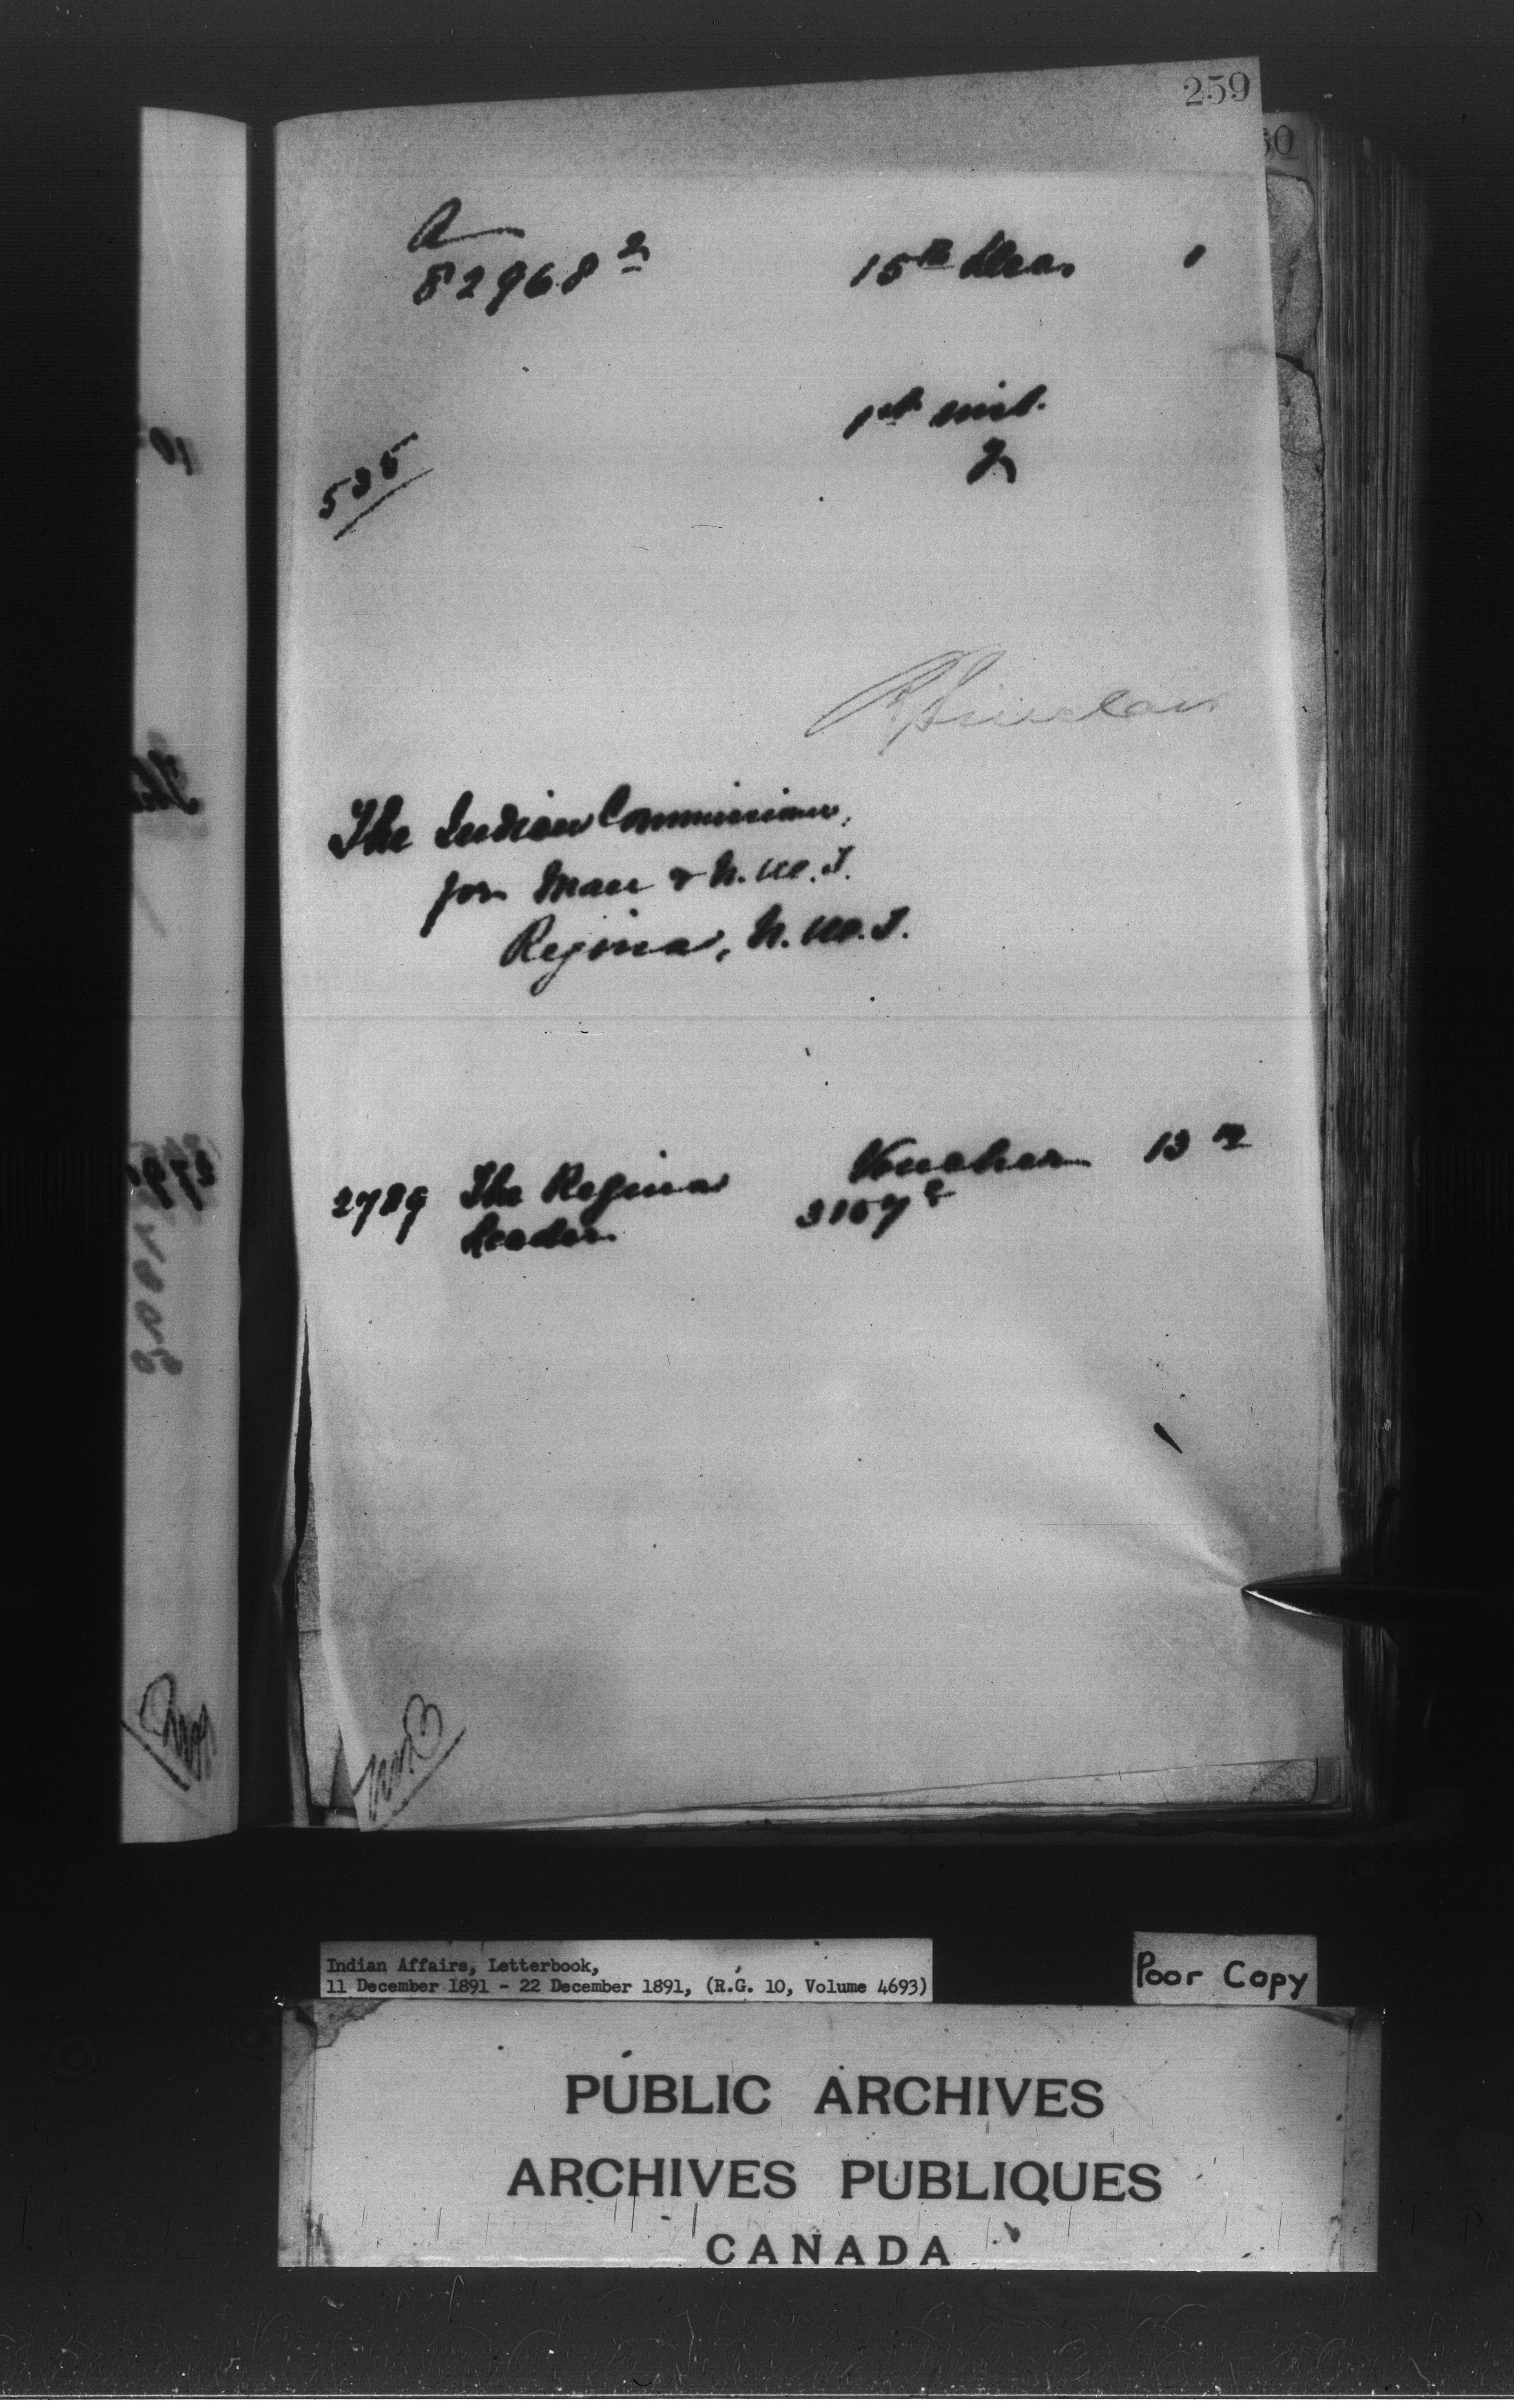 259
60
A
82968²
15th Dec. 1
1st inst.
2
535
R Sinclair
The Indian Commissioner,
for Man & N.W.T.
Regina, N.W.T.
2789 The Regina Voucher 13
Leader 3157
Indian Affairs, Letterbook,
11 December 1891 - 22 December 1891, (R.G. 10, Volume 4693)
Poor Copy
PUBLIC ARCHIVES
ARCHIVES PUBLIQUES
CANADA